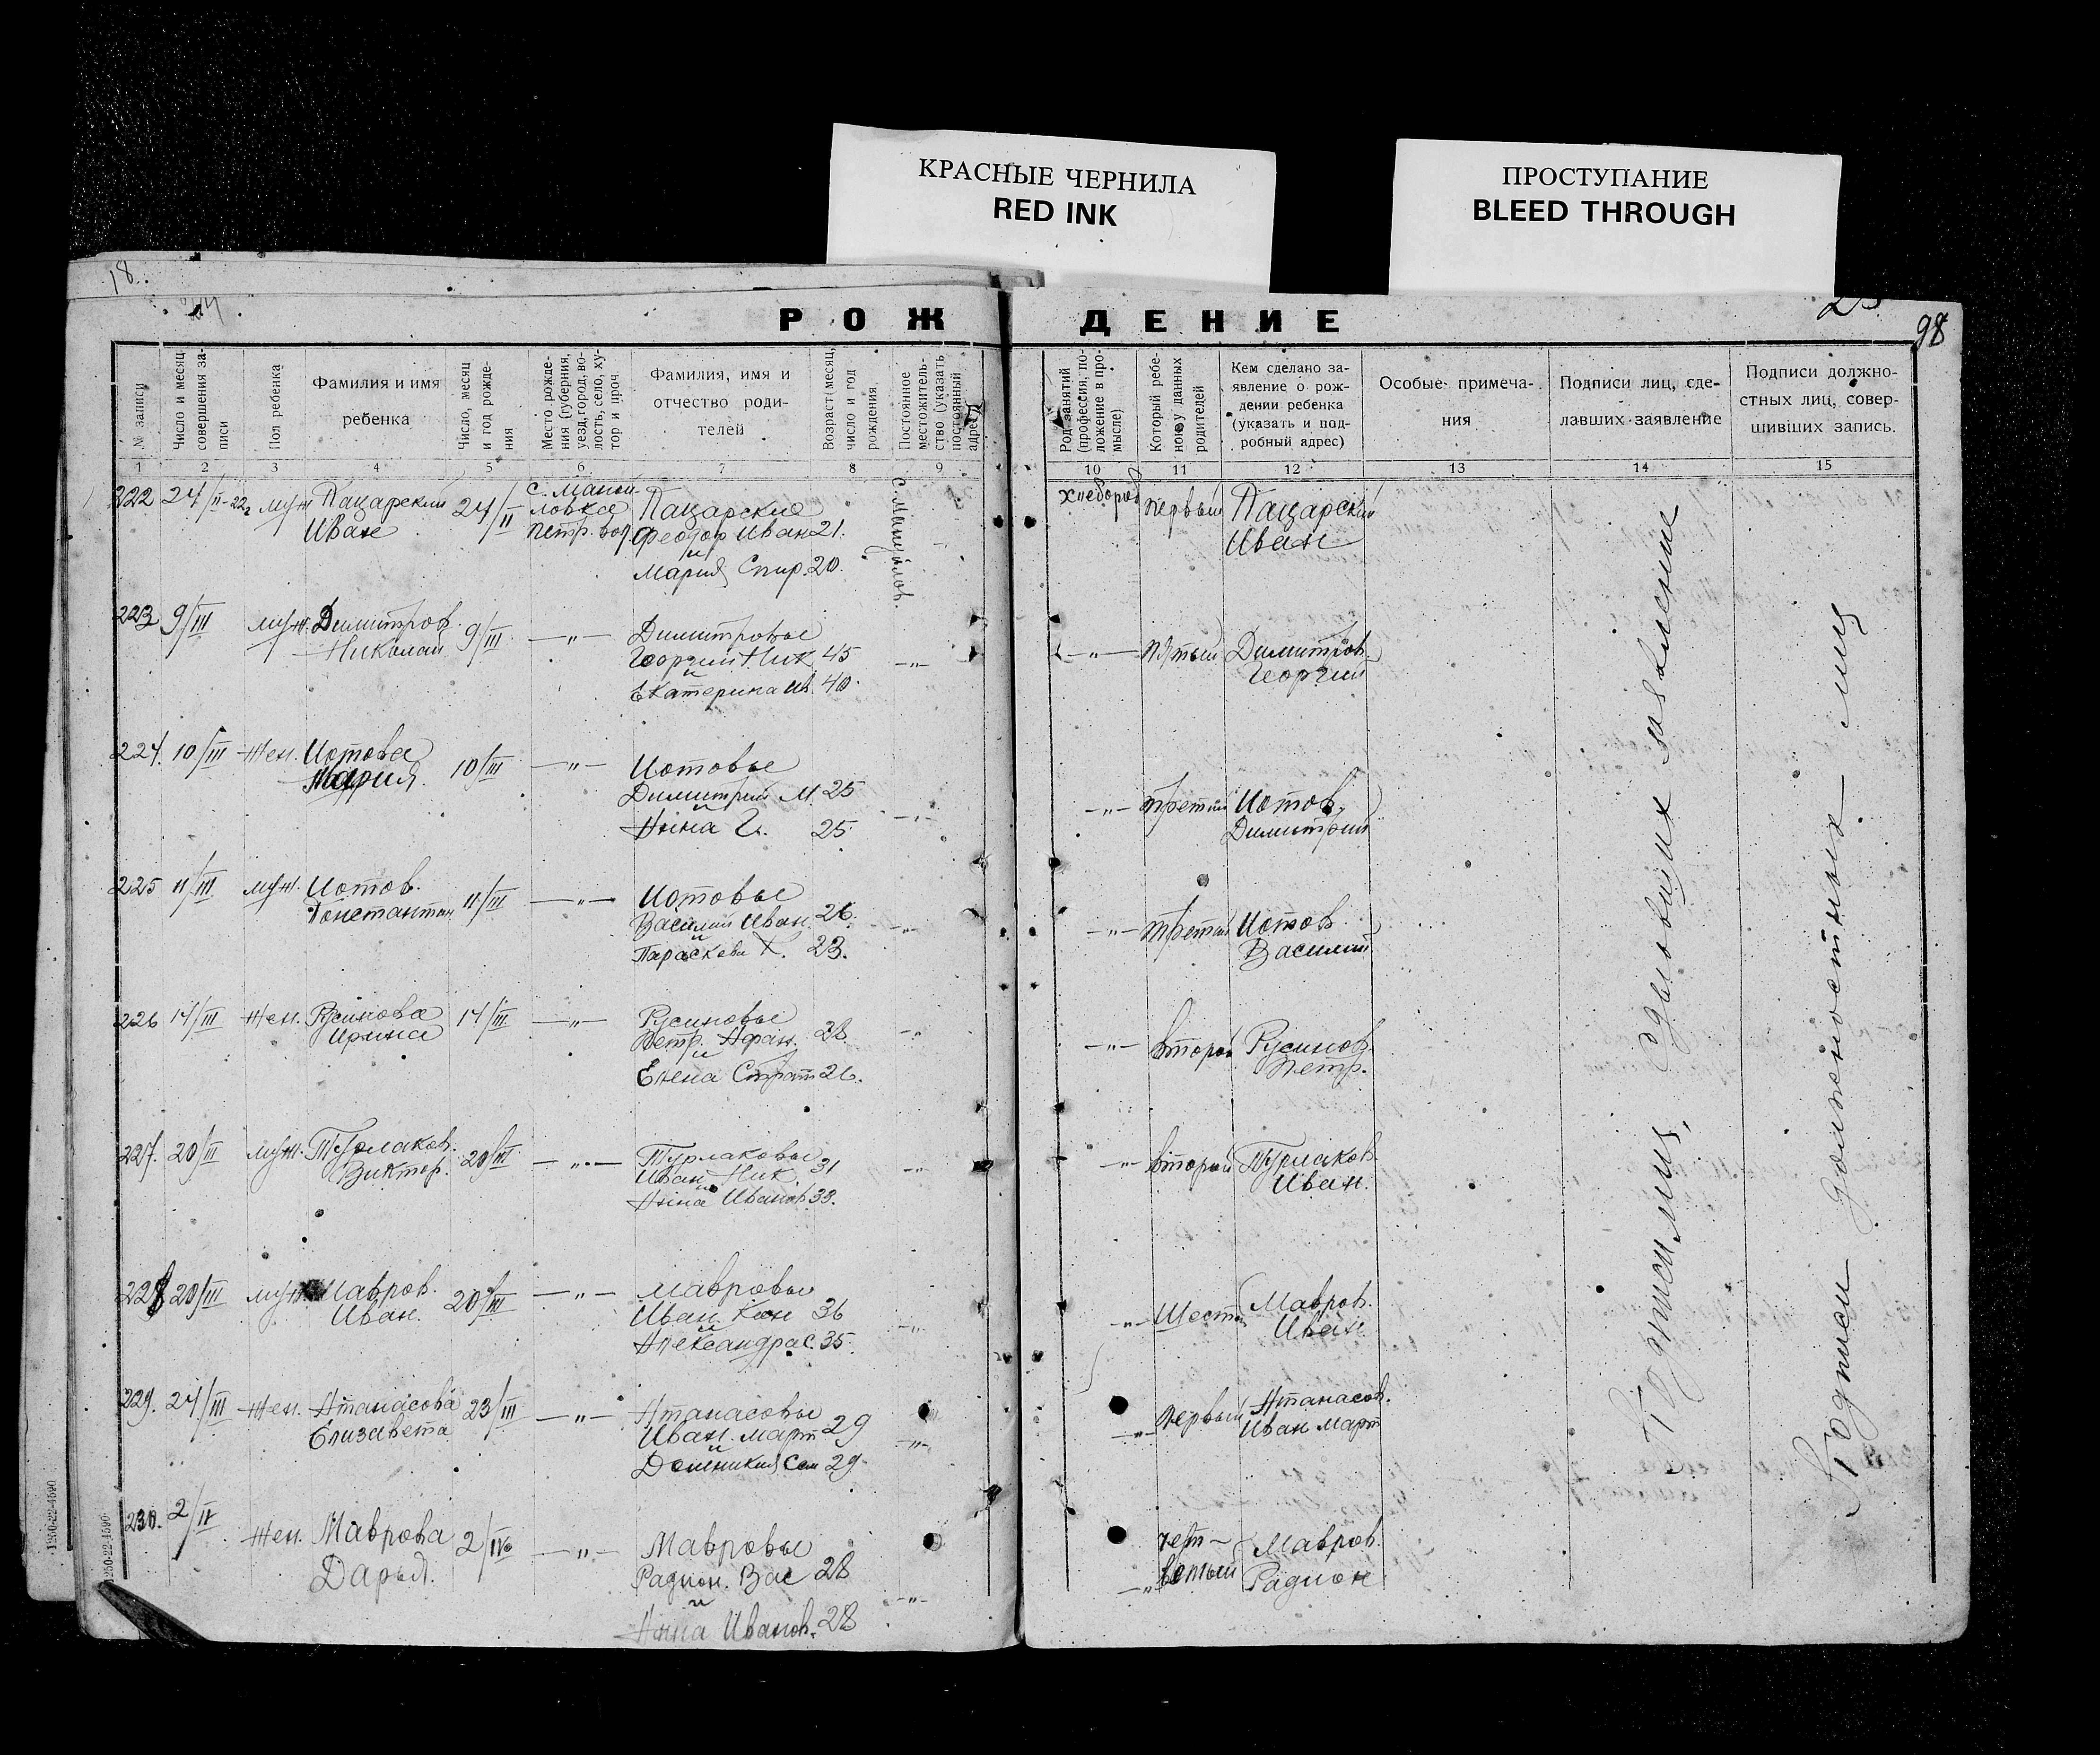 КРАСНЫЕ ЧЕРНИЛА
RED INK
ПРОСТУПАНИЕ
BLEED THROUGH
18.
98
РОЖДЕНИЕ
№ записи
Число и месяц совершения записи
Пол ребенка
Фамилия и имя ребенка
Число, месяц и год рождения
Место рождения (губерния, уезд, город, волость, село, хутор и проч.
Фамилия, имя и отчество родителей
Возраст (месяц, число и год рождения
Постоянное местожительство (указать постоянный адрес)
Род занятий (профессия, положение в промысле)
Который ребенок у данных родителей
Кем сделано заявление о рождении ребенка (указать и подробный адрес)
Особые примечания
Подписи лиц, сделавших заявление
Подписи должностных лиц, совершивших запись.
1 2 3 4 5 6 7 8 9 10 11 12 13 14 15
222 24/II-22г муж Пацарский 24/II с. Манойловка Пацарские хлебороб первый Пацарский
Иван Петр. вол. Феодор Иван 21. Иван
и
Мария Спир. 20.
223 9/III муж. Димитров 9/III —"— Димитровы —"— —"— пятый Димитров
Николай Георгий Ник. 45 Георгий
и
Екатерина Ив. 40.
224. 10/III жен. Иотова 10/III —"— Иотовы —"— —"— третий Иотов
Мария. Димитрий М. 25 Димитрий
и
Анна Г. 25.
225 11/III муж. Иотов 11/III —"— Иотовы —"— —"— третий Иотов
Константин Василий Иван. 26. Василий
и
Параскева Х. 23.
226 14/III жен. Русинова 14/III —"— Русиновы —"— —"— второй Русинов
Ирина Петр. Афан. 28. Петр.
и
Елена Страт 26.
227. 20/III муж. Турлаков. 20/III —"— Турлаковы —"— —"— второй Турлаков
Виктор. Иван Ник. 31 Иван.
и
Анна Иванов. 33.
228 20/III муж Мавров. 20/III —"— Мавровы —"— —"— Шест Мавров.
Иван. Иван Кон 36 Иван
и
Александра С. 35.
229. 24/III жен. Атанасова 23/III —"— Атанасовы —"— —"— первый Атанасов.
Елизавета Иван. Март 29 Иван Март
и
Доминикия Сем 29.
230. 2/IV жен. Маврова 2/IV —"— Мавровы —"— —"— четвертый Мавров.
Дарья. Радион. Вас 28 Радион
и
Анна Иванов. 28
Подписи лиц, сделовших заявление
Подписи должностных лиц
1250-22-4590